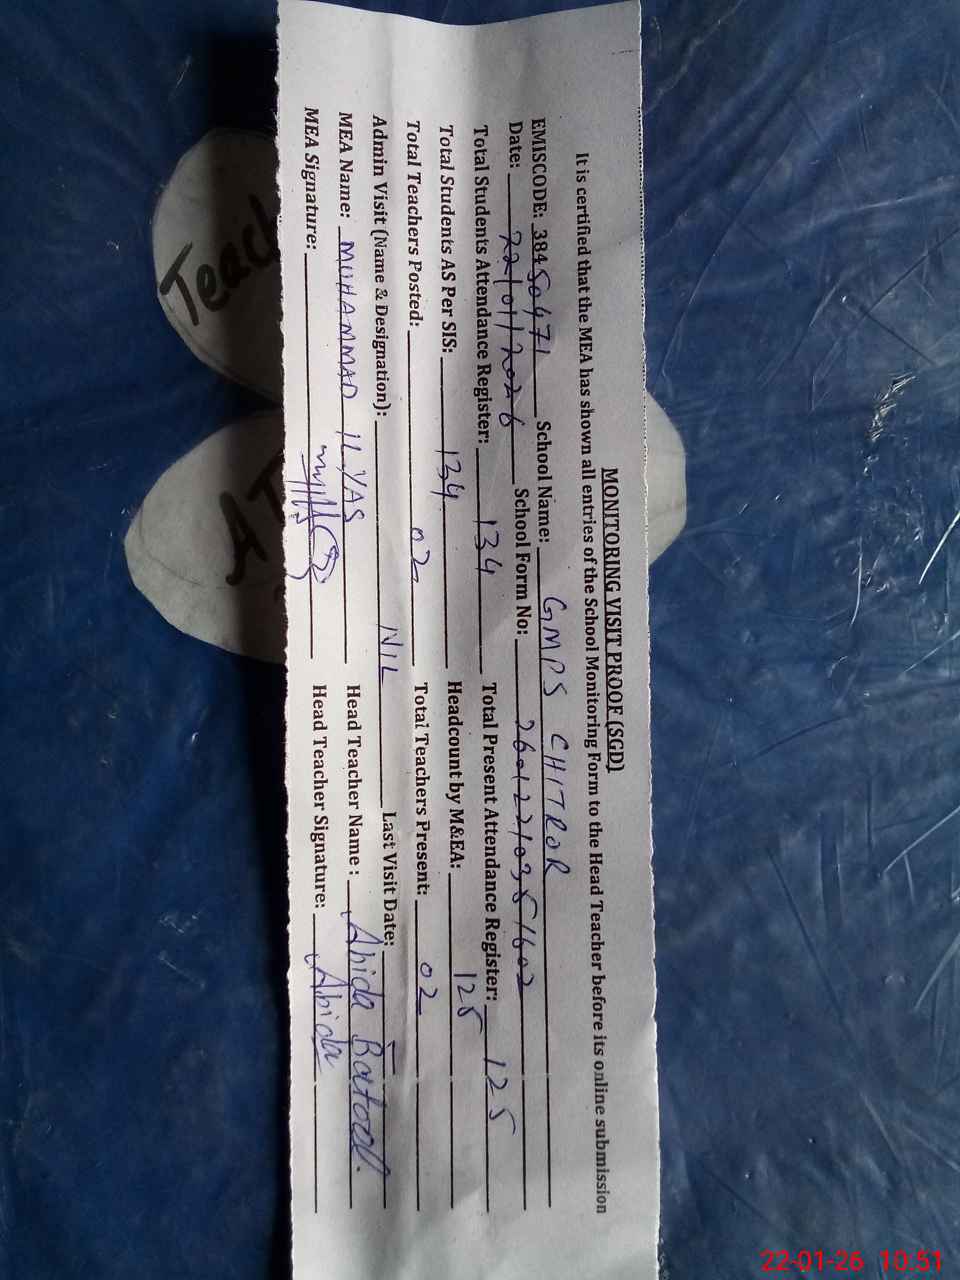 MONITORING VISIT PROOF (SGD)
It is certified that the MEA has shown all entries of the School Monitoring Form to the Head Teacher before its online submission
EMISCODE: 38450471 School Name: GMPS CHITROR
Date: 22/01/2026 School Form No: 26012210351602
Total Students Attendance Register: 134 Total Present Attendance Register: 125
Total Students AS Per SIS: 134 Headcount by M&EA: 125
Total Teachers Posted: 02 Total Teachers Present: 02
Admin Visit (Name & Designation): NIL Last Visit Date: -
MEA Name: MUHAMMAD ILYAS Head Teacher Name: Abida Batool.
MEA Signature: Head Teacher Signature: Abida
Teach
22-01-26 10:51